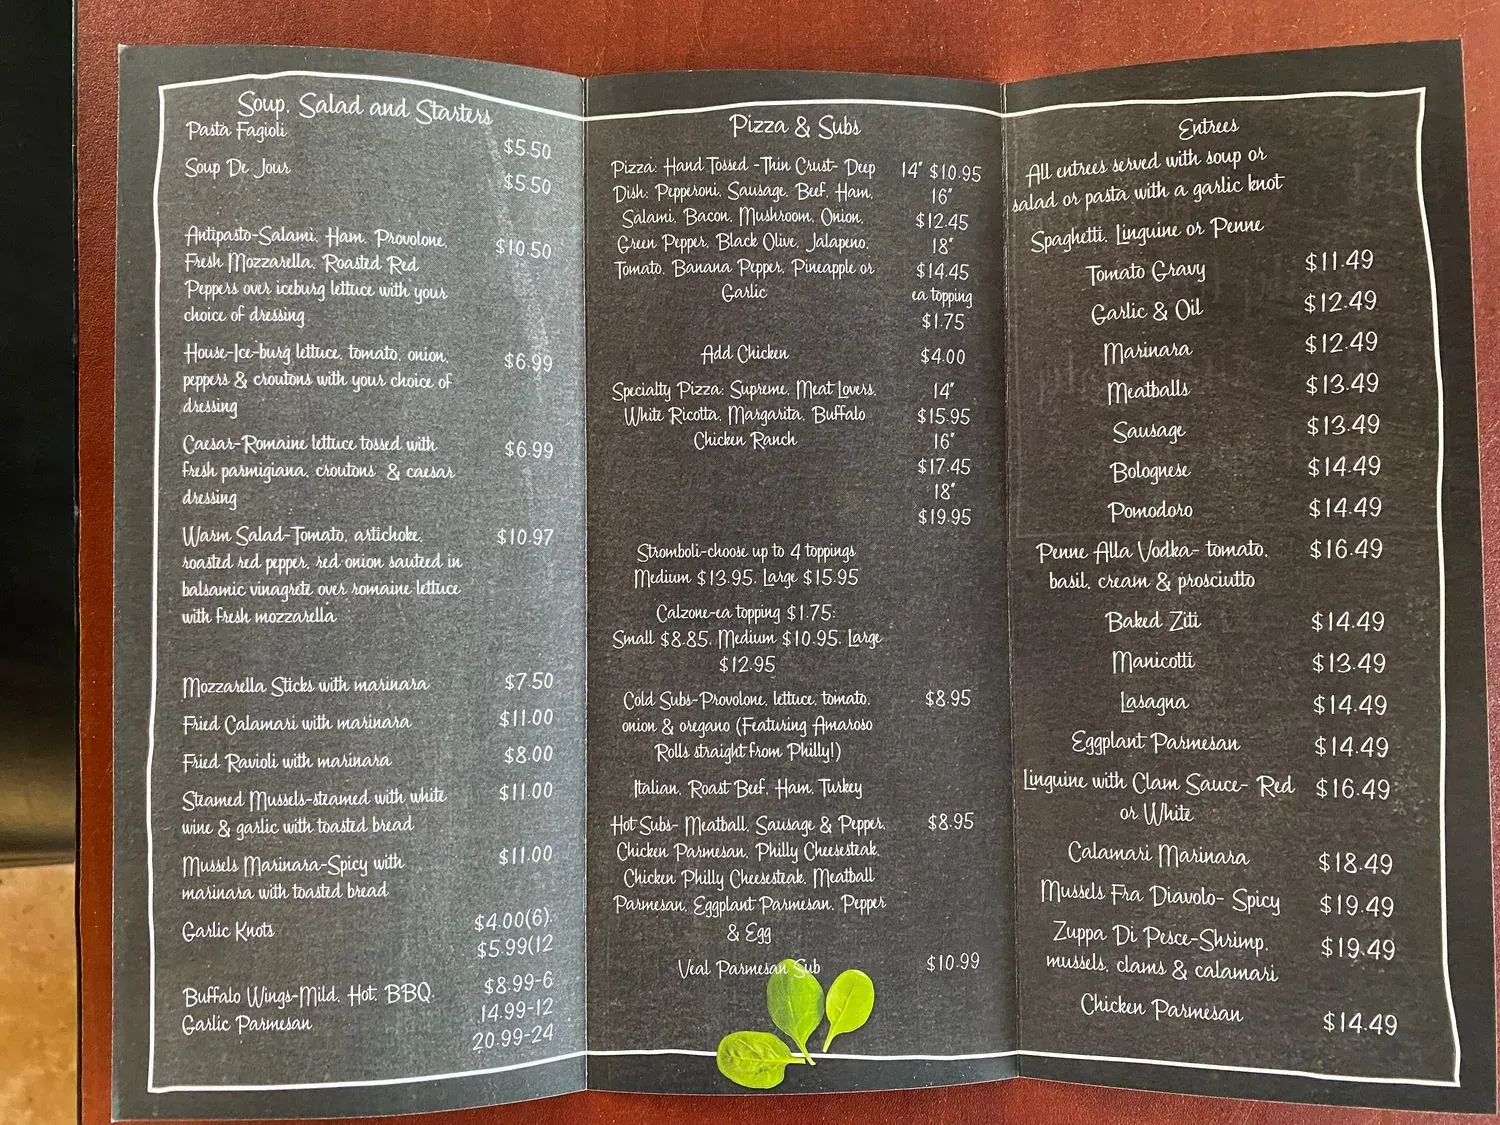 Soup, Salad and Starters
Pasta Fagioli
$5.50
Soup De Jour
$5.50
Antipasto-Salami, Ham, Provolone, $10.50
Fresh Mozzarella, Roasted Red
Peppers over iceburg lettuce with your
choice of dressing
House-Ice-burg lettuce, tomato, onion, $6.99
peppers & croutons with your choice of
dressing
Caesar-Romaine lettuce tossed with $6.99
fresh parmigiana, croutons & caesar
dressing
Warm Salad-Tomato, artichoke, $10.97
roasted red pepper, red onion sauteed in
balsamic vinagrete over romaine lettuce
with fresh mozzarella
Mozzarella Sticks with marinara $7.50
Fried Calamari with marinara $11.00
Fried Ravioli with marinara $8.00
Steamed Mussels-steamed with white $11.00
wine & garlic with toasted bread
Mussels Marinara-Spicy with $11.00
marinara with toasted bread
Garlic Knots $4.00(6),
$5.99(12
Buffalo Wings-Mild, Hot, BBQ, $8.99-6
Garlic Parmesan 14.99-12
20.99-24
Pizza & Subs
Pizza: Hand Tossed -Thin Crust- Deep 14" $10.95
Dish: Pepperoni, Sausage, Beef, Ham, 16"
Salami, Bacon, Mushroom, Onion, $12.45
Green Pepper, Black Olive, Jalapeno, 18"
Tomato, Banana Pepper, Pineapple or $14.45
Garlic ea topping
$1.75
Add Chicken $4.00
Specialty Pizza: Supreme, Meat Lovers, 14"
White Ricotta, Margarita, Buffalo $15.95
Chicken Ranch 16"
$17.45
18"
$19.95
Stromboli-choose up to 4 toppings
Medium $13.95, Large $15.95
Calzone-ea topping $1.75:
Small $8.85, Medium $10.95, Large
$12.95
Cold Subs-Provolone, lettuce, tomato, $8.95
onion & oregano (Featuring Amaroso
Rolls straight from Philly!)
Italian, Roast Beef, Ham, Turkey
Hot Subs- Meatball, Sausage & Pepper, $8.95
Chicken Parmesan, Philly Cheesesteak,
Chicken Philly Cheesesteak, Meatball
Parmesan, Eggplant Parmesan, Pepper
& Egg
Veal Parmesan Sub $10.99
Entrees
All entrees served with soup or
salad or pasta with a garlic knot
Spaghetti, Linguine or Penne
Tomato Gravy $11.49
Garlic & Oil $12.49
Marinara $12.49
Meatballs $13.49
Sausage $13.49
Bolognese $14.49
Pomodoro $14.49
Penne Alla Vodka- tomato, $16.49
basil, cream & prosciutto
Baked Ziti $14.49
Manicotti $13.49
Lasagna $14.49
Eggplant Parmesan $14.49
Linguine with Clam Sauce- Red $16.49
or White
Calamari Marinara $18.49
Mussels Fra Diavolo- Spicy $19.49
Zuppa Di Pesce-Shrimp, $19.49
mussels, clams & calamari
Chicken Parmesan $14.49